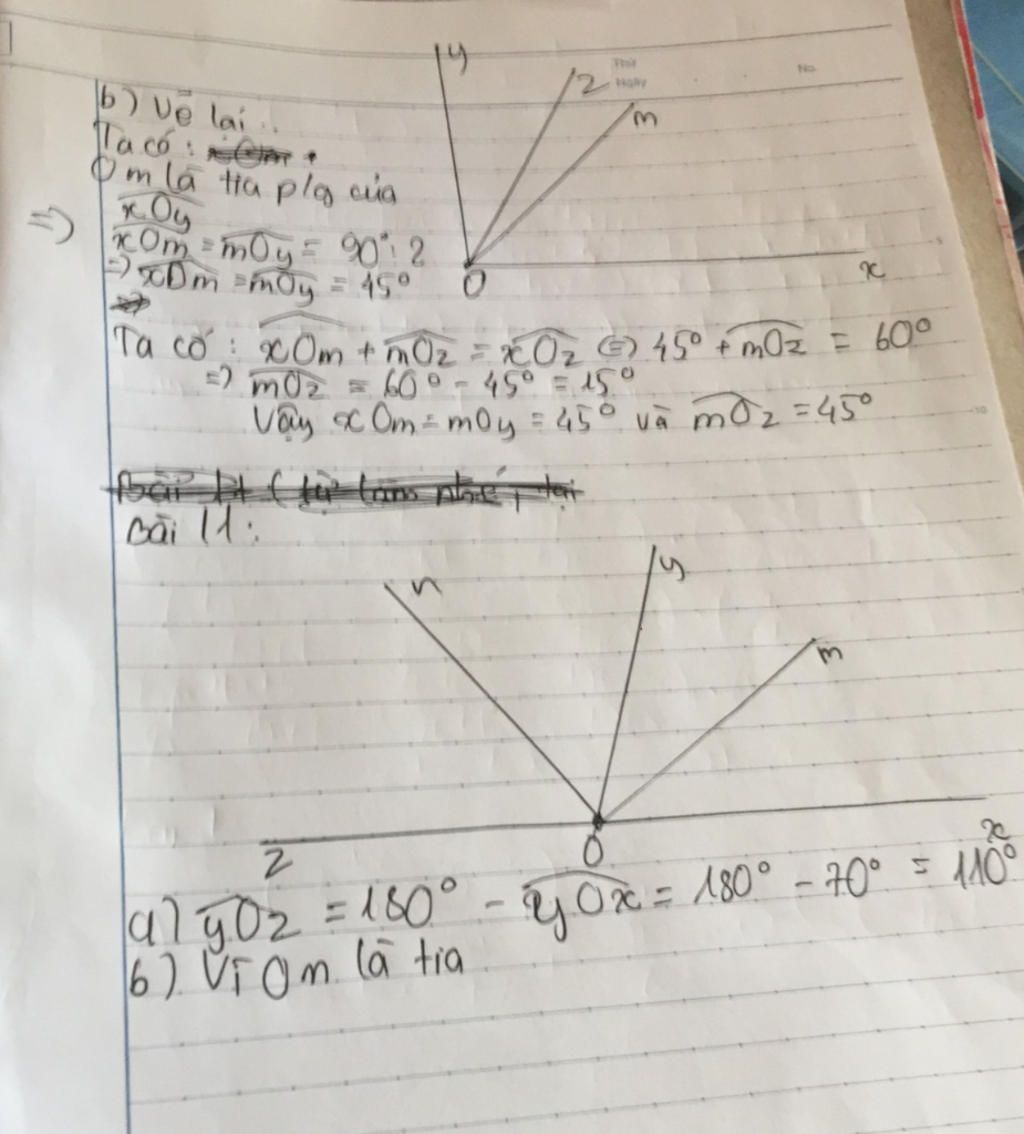 y
z
m
Thứ
Ngày
No.
b) Vẽ lại..
Ta có:
Om là tia p/g của
xOy
=> xOm = mOy = 90° : 2
=> xOm = mOy = 45°
O
x
Ta có: xOm + mOz = xOz <=> 45° + mOz = 60°
=> mOz = 60° - 45° = 15°
Vậy xOm = mOy = 45° và mOz = 45°
Bài 11:
n
y
m
z
O
x
a) yOz = 180° - yOx = 180° - 70° = 110°
b) Vì Om là tia